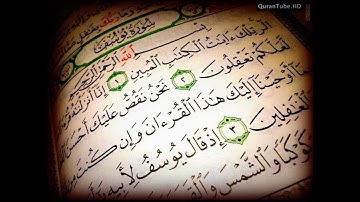 QuranTube.HD
سُورَةُ يُوسُفَ
بِسْمِ ٱللَّهِ ٱلرَّحْمَٰنِ ٱلرَّحِيمِ
الٓر تِلْكَ ءَايَٰتُ ٱلْكِتَٰبِ ٱلْمُبِينِ ١ إِنَّآ أَنزَلْنَٰهُ
لَّعَلَّكُمْ تَعْقِلُونَ ٢ نَحْنُ نَقُصُّ عَلَيْكَ أَحْسَنَ
بِمَآ أَوْحَيْنَآ إِلَيْكَ هَٰذَا ٱلْقُرْءَانَ وَإِن كُنتَ مِن
ٱلْغَٰفِلِينَ ٣ إِذْ قَالَ يُوسُفُ لِأَبِيهِ
كَوْكَبًا وَٱلشَّمْسَ وَٱلْقَمَرَ